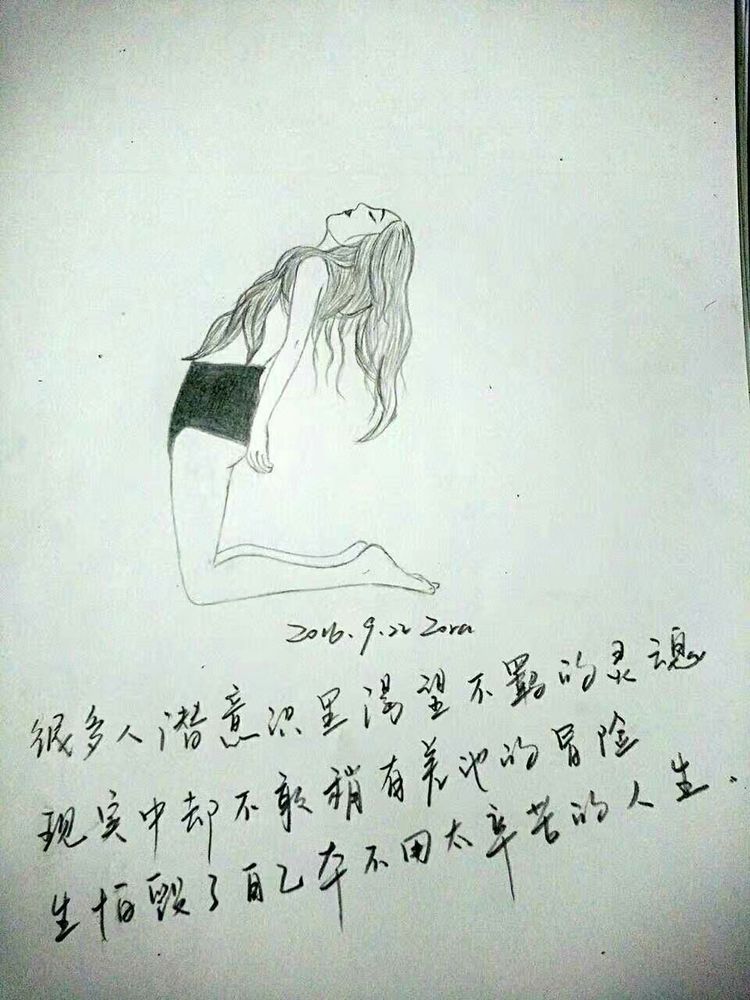 2016.9.22 Zora
很多人潜意识里渴望不羁的灵魂
现实中却不敢稍有差池的冒险
生怕毁了自己本不用太辛苦的人生.